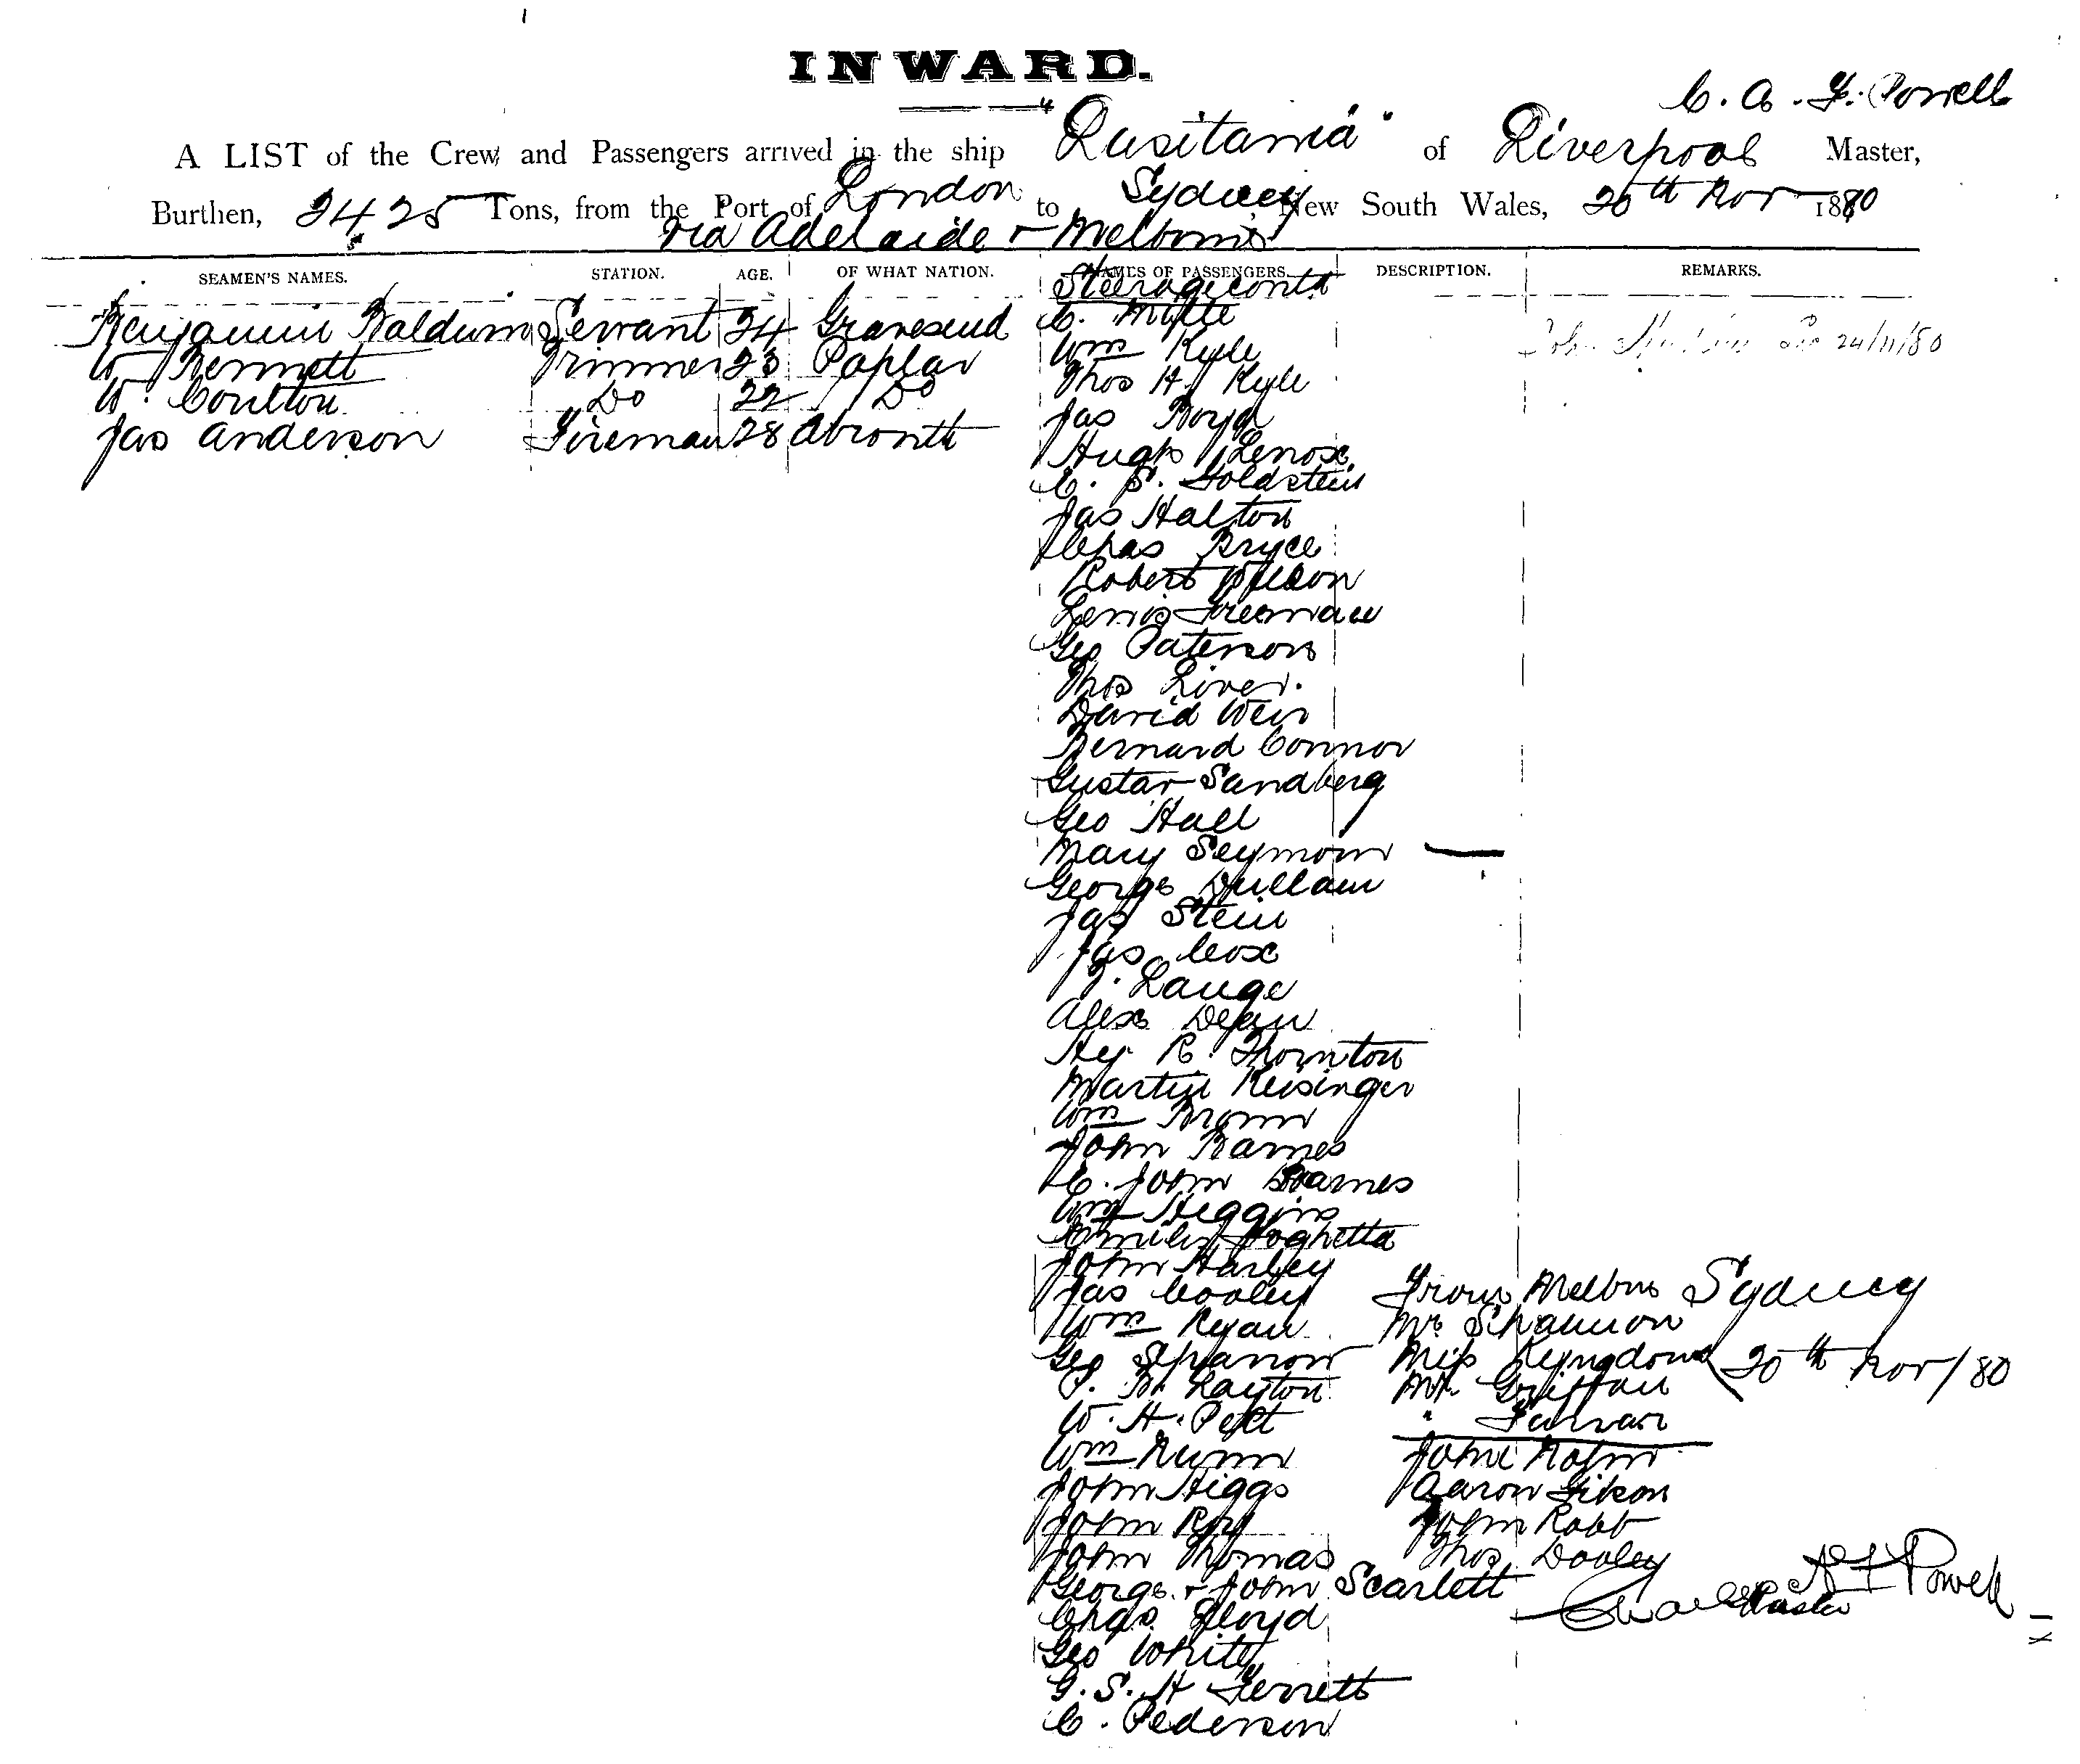 INWARD.
C. A. F. Powell
A LIST of the Crew and Passengers arrived in the ship "Lusitania" of Liverpool Master,
Burthen, 2425 Tons, from the Port of London to Sydney, New South Wales, 20th Nov 1880
via Adelaide & Melbourne
SEAMEN'S NAMES. STATION. AGE. OF WHAT NATION. NAMES OF PASSENGERS. DESCRIPTION. REMARKS.
Benjamin Baldwin Servant 24 Gravesend
W Bennett Trimmer 23 Poplar
W. Coulton Do 22 Do
Jas Anderson Fireman 28
Steerage contd
C.
Wm Kyle
Thos H. Kyle
Jas Boyd
Hugh Lenox
C. S. Goldstein
Jas Halton
Chas Bryce
Robert Wilson
Lewis Freeman
Geo Paterson
Thos Liver.
David Weir
Bernard Connor
Gustav Sandberg
Geo Hall
Mary Seymour
George Dullam
Jas Stein
Jas Cox
J. Lange
Alex Dejan
Hy R. Thornton
Martin Reisinger
Wm Brown
John Barnes
C. John Barnes
Wm Higgins
Emily Hoghetta
John Harley
Jas Cooley
Wm Ryan
Geo
P. M. Layton
W. H. Pett
Wm Nunn
John Higgs
John Roy
John Thomas
George & John Scarlett
Chas. Floyd
Geo White
G. S. H Gerrett
C. Pederson
John 24/11/80
From Melbne
Mr. Shannon
Miss Kyngdon
Mr. Griffan
" Farrar
John
Aaron Gibson
John Robb
Thos. Dooley
Sydney
20th Nov/80
Charles A F Powell
Master